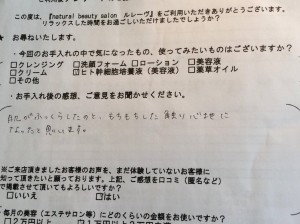 この度は、『natural beauty salon ルシーヴ』をご利用いただきありがとうございます。
リラックスした時間をお過ごしいただけましたでしょうか？
★ お尋ねいたします。
・今回のお手入れの中で気になったもの、使ってみたいものはございますか？
□クレンジング □洗顔フォーム □ローション □美容液
□クリーム ☑ヒト幹細胞培養液（美容液） □薬草オイル
□その他
・お手入れ後の感想、ご意見をお聞かせください。
肌がふっくらしたのと、もちもちした触りごこちに
なったと思います。
※ご来店頂きましたお客様のお声を、まだ体験していないお客様に
知って頂きたいと願っております。上記、ご感想を口コミ（匿名など）
で掲載させて頂いてもよろしいですか？
□いいえ ☑はい
・毎月の美容（エステサロン等）にどのくらいの金額をお使いですか？